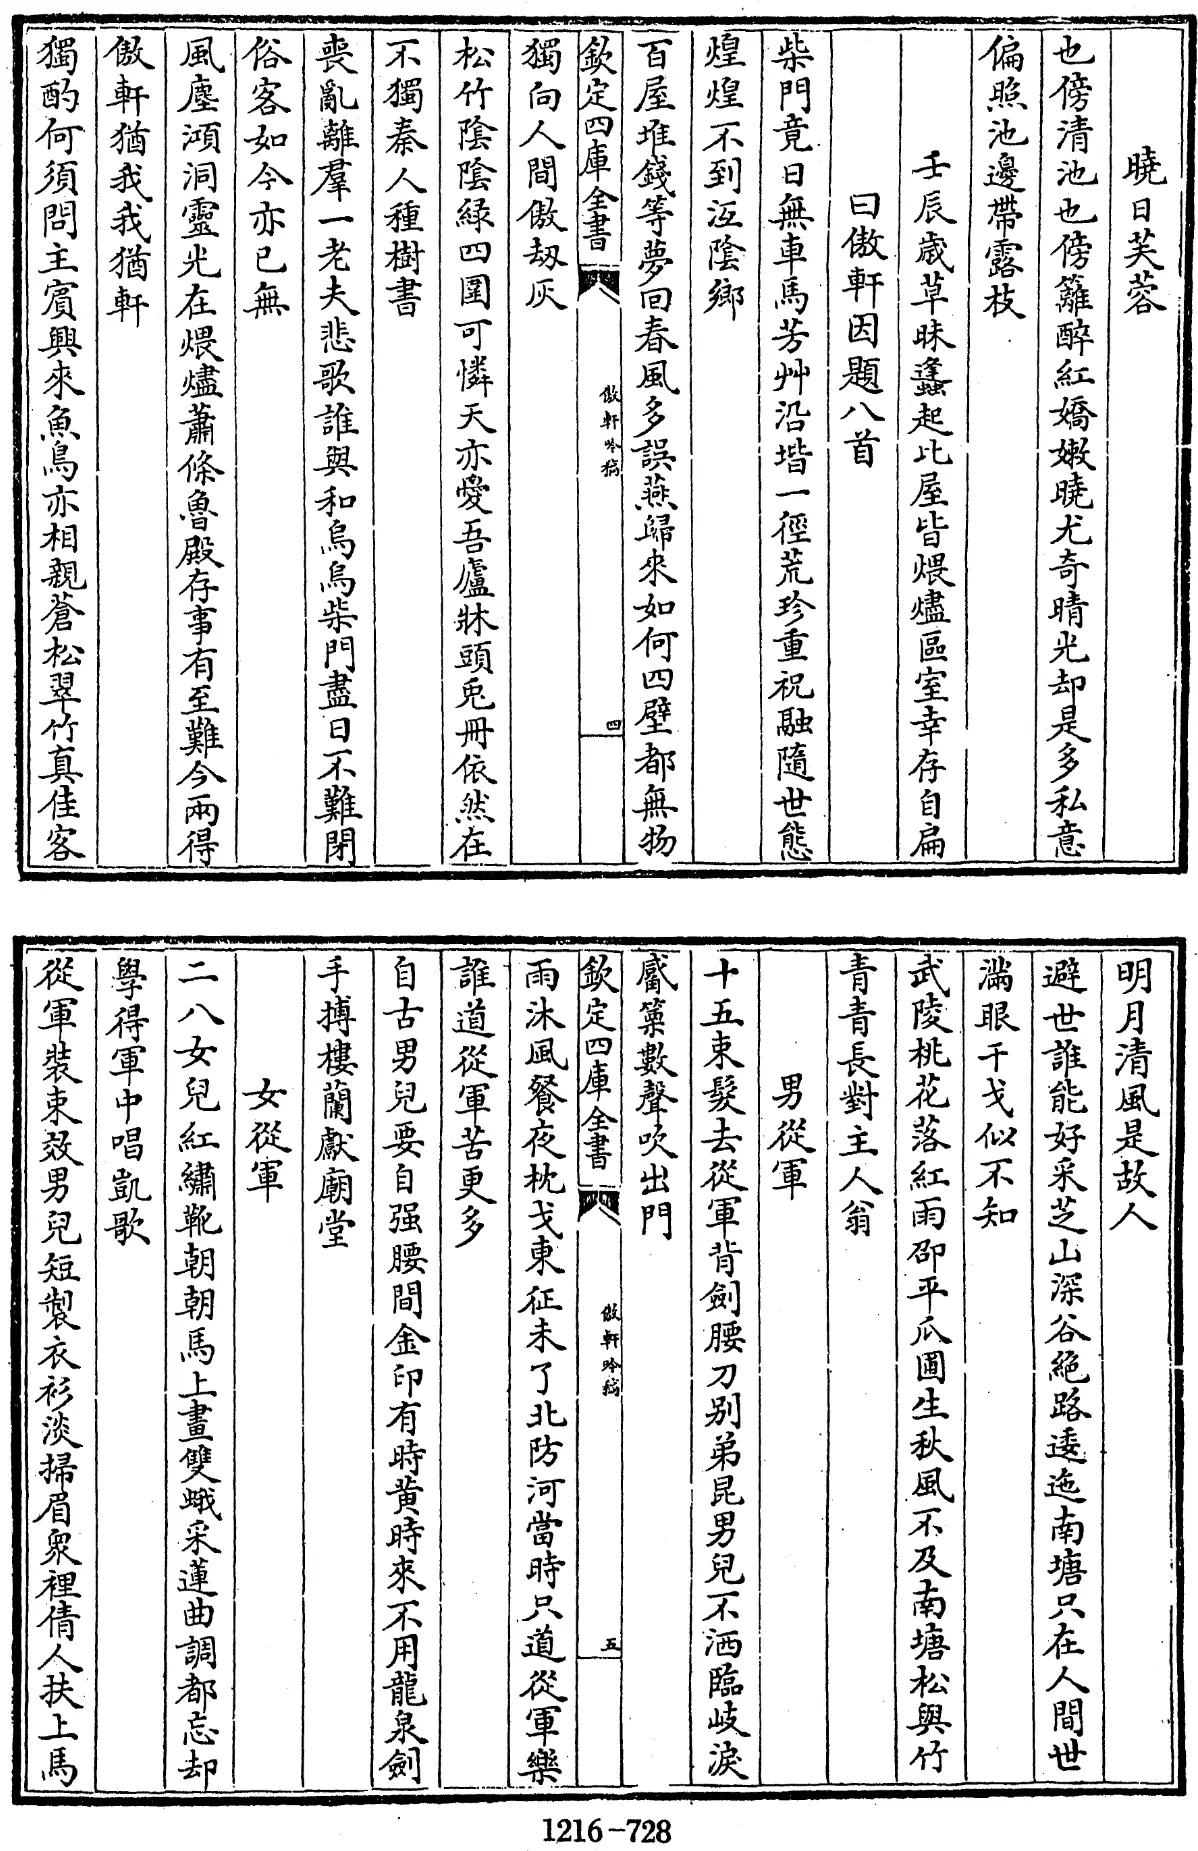 曉日芙蓉
也傍清池也傍籬醉紅嬌嫩曉尤奇晴光却是多私意
偏照池邊帶露枝
壬辰歲草昧蠭起比屋皆煨燼區室幸存自扁
曰傲軒因題八首
柴門竟日無車馬芳艸沿堦一徑荒珍重祝融隨世態
煌煌不到江陰鄉
百屋堆錢等夢回春風多誤燕歸來如何四壁都無物
欽定四庫全書
傲軒吟稿
四
獨向人間傲刼灰
松竹陰陰緑四圍可憐天亦愛吾廬牀頭兎冊依然在
不獨秦人種樹書
喪亂離羣一老夫悲歌誰與和烏烏柴門盡日不難閉
俗客如今亦已無
風塵澒洞靈光在煨燼蕭條魯殿存事有至難今兩得
傲軒猶我我猶軒
獨酌何須問主賓興來魚鳥亦相親蒼松翠竹真佳客
明月清風是故人
避世誰能好采芝山深谷絶路逶迤南塘只在人間世
滿眼干戈似不知
武陵桃花落紅雨邵平瓜圃生秋風不及南塘松與竹
青青長對主人翁
男從軍
十五束髮去從軍背劍腰刀别弟昆男兒不洒臨岐淚
觱篥數聲吹出門
欽定四庫全書
傲軒吟稿
五
雨沐風餐夜枕戈東征未了北防河當時只道從軍樂
誰道從軍苦更多
自古男兒要自强腰間金印有時黄時來不用龍泉劍
手搏樓蘭獻廟堂
女從軍
二八女兒紅繡靴朝朝馬上畫雙蛾采蓮曲調都忘却
學得軍中唱凱歌
從軍裝束效男兒短製衣衫淡掃眉衆裡倩人扶上馬
1216-728